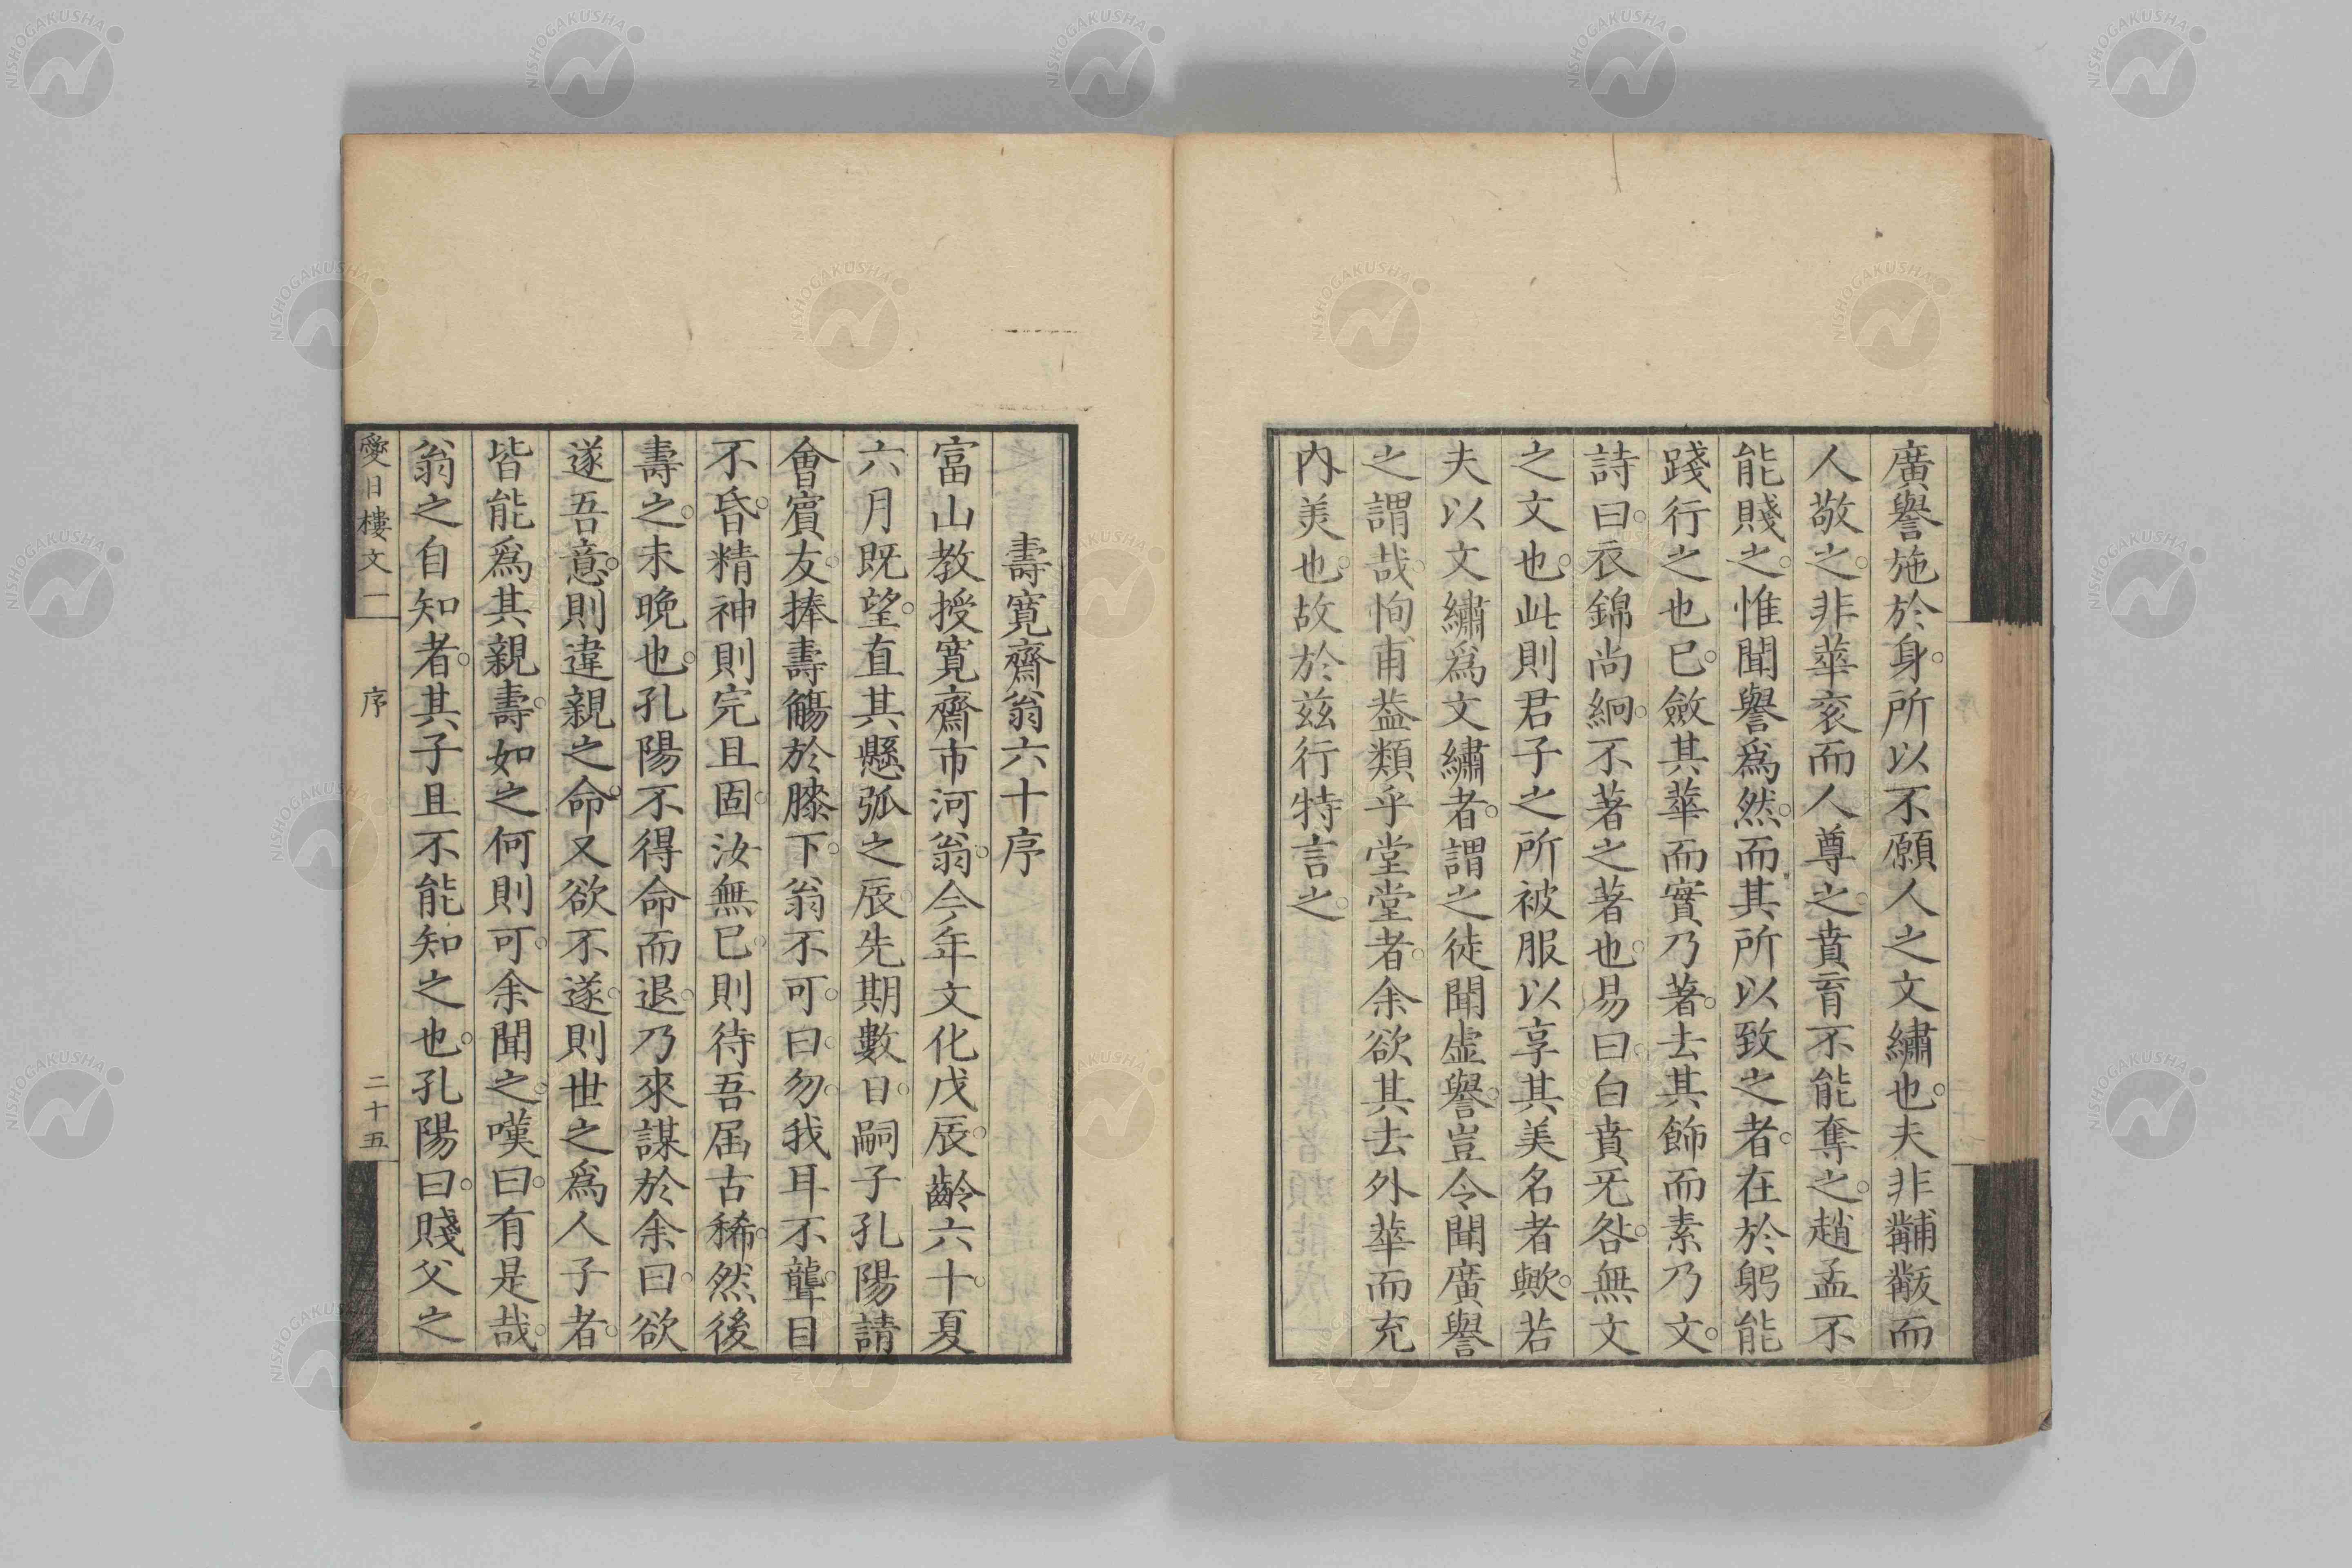 廣譽施於身。所以不願人之文繡也。夫非黼黻而
人敬之。非華袞而人尊之。賁育不能奪之。趙孟不
能賤之。惟聞譽爲然。而其所以致之者。在於躬能
踐行之也已。斂其華而實乃著。去其飾而素乃文。
詩曰。衣錦尚絅。不著之著也。易曰。白賁旡咎。無文
之文也。此則君子之所被服以享其美名者歟。若
夫以文繡爲文繡者。謂之徒聞虛譽。豈令聞廣譽
之謂哉。恂甫葢類乎堂堂者。余欲其去外華而充
內美也。故於兹行特言之。
壽寬齋翁六十序
富山教授寬齋市河翁。今年文化戊辰。齡六十。夏
六月既望。直其懸弧之辰。先期數日。嗣子孔陽請
會賓友。捧壽觴於膝下。翁不可。曰。勿。我耳不聾。目
不昏。精神則完且固。汝無已。則待吾届古稀。然後
壽之。未晚也。孔陽不得命而退。乃來謀於余曰。欲
遂吾意。則違親之命。又欲不遂。則世之爲人子者。
皆能爲其親壽。如之何則可。余聞之。嘆曰。有是哉。
翁之自知者。其子且不能知之也。孔陽曰。賤父之
愛日樓文一 序 二十五
NISHOGAKUSHA